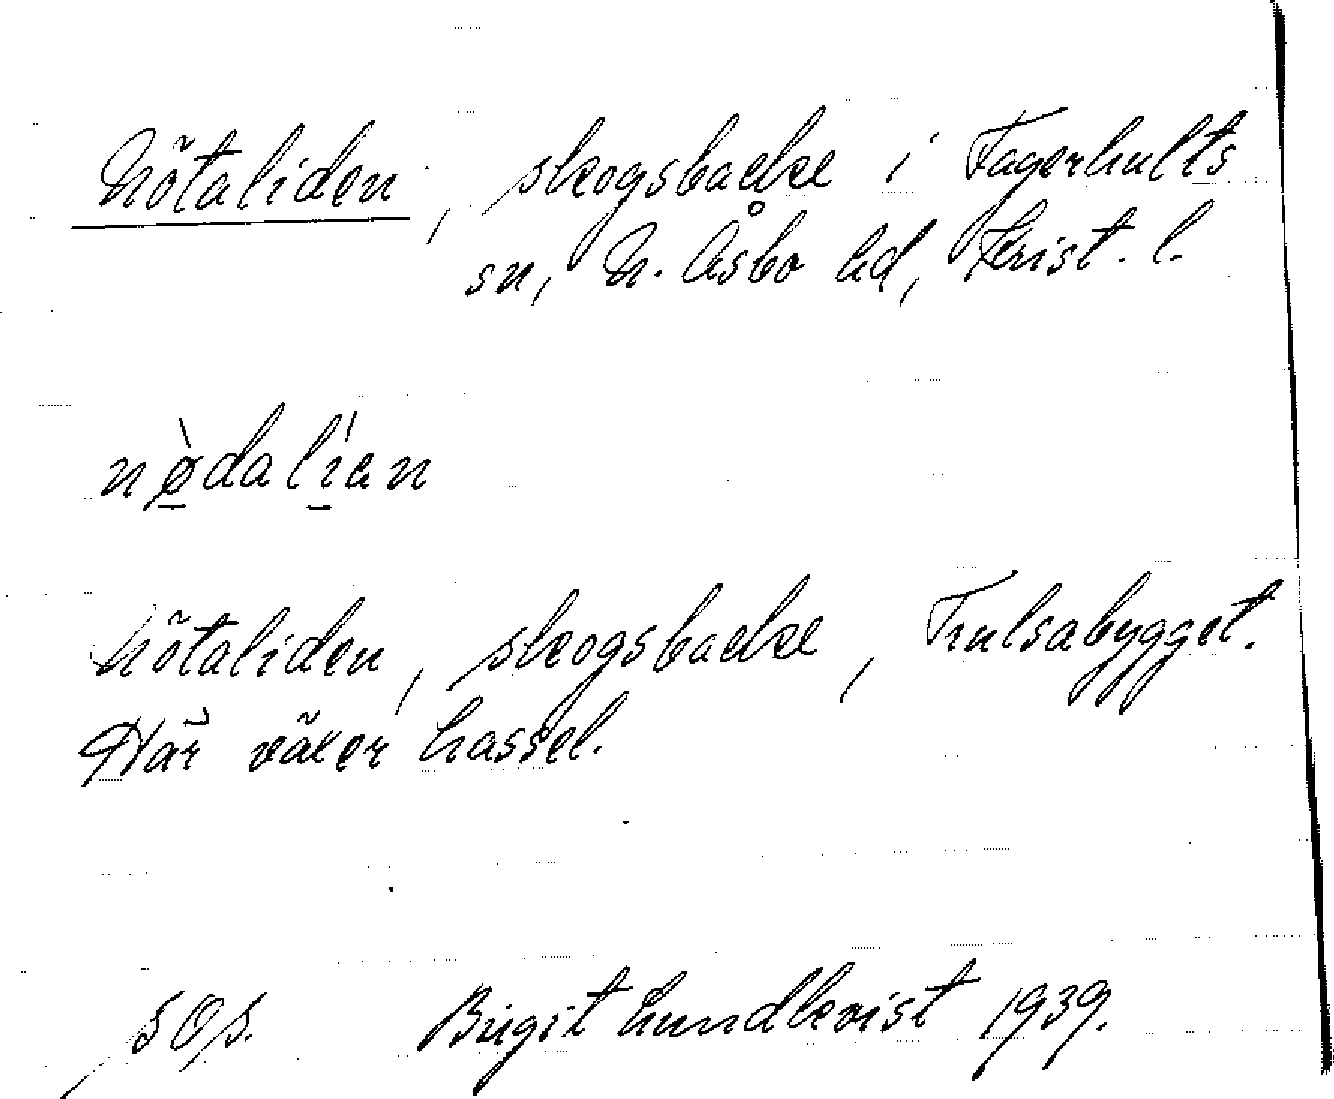 Nötaliden, skogsbacke i Fagerhults
sn, N. Åsbo hd, Krist. l.
nø̀dalíen
Nötaliden, skogsbacke, Trulsabygget.
Här växer hassel.
SOS. Birgit Lundkvist 1939.